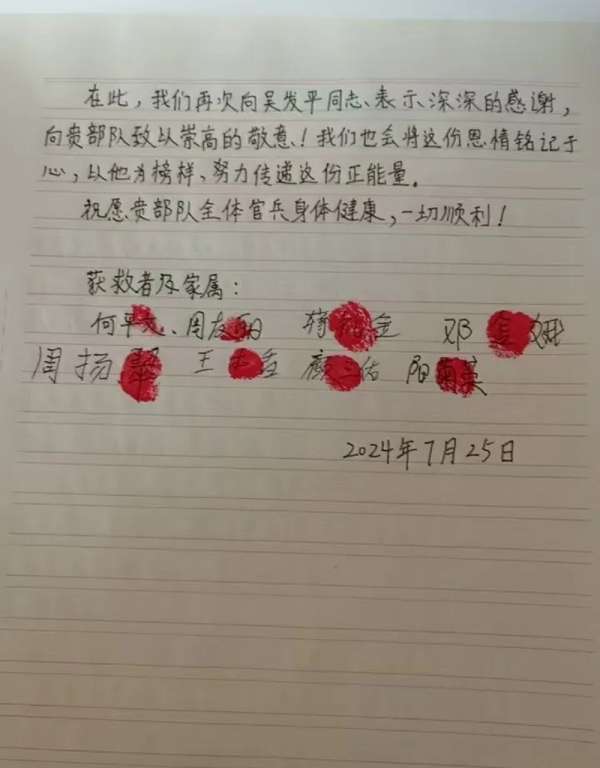 在此，我们再次向吴发平同志、表示深深的感谢，
向贵部队致以崇高的敬意、！我们也会将这份恩情铭记于
心，以他为榜样、努力传递这份正能量。
祝愿贵部队全体官兵身体健康，一切顺利！
获救者及家属：
何平、周友 金 邓
周扬 王 阳
2024年7月25日